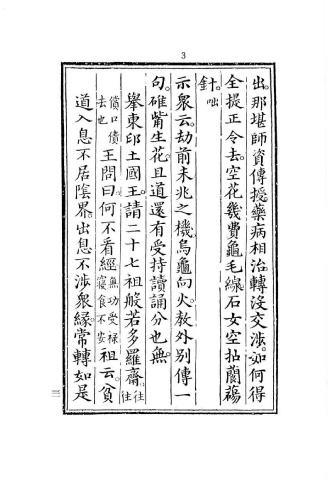 3
出。那堪師資傳授。藥病相治。轉没交涉。如何得
全提正令去。空花幾費龜毛線。石女空拈闌蕩
針。咄
示衆云。劫前未兆之機。烏龜向火。教外別傳一
句。碓觜生花。且道還有受持讀誦分也無。
舉東印土國王請二十七祖般若多羅齋。往往
償口債去也王問曰何不看經無功受禄寢食不安祖云。貧
道入息不居陰界。出息不涉衆緣。常轉如是
三